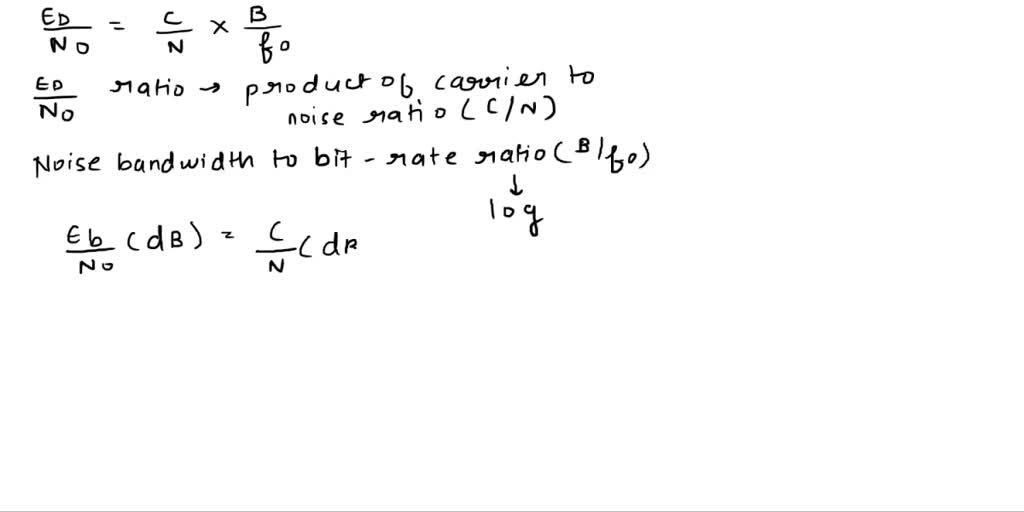 ED/NO = C/N × B/fo
ED/NO ratio → product of carrier to
noise ratio (C/N)
Noise bandwidth to bit - rate ratio (B/fo)
↓
log
Eb/No (dB) = C/N (dB